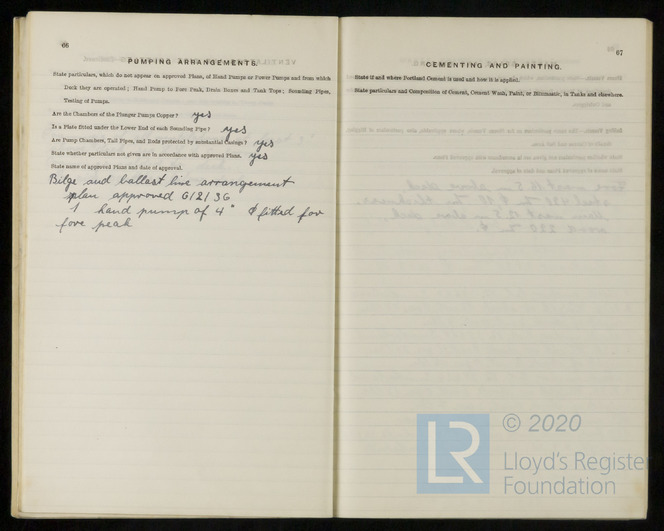 66
PUMPING ARRANGEMENTS.
State particulars, which do not appear on approved Plans, of Hand Pumps or Power Pumps and from which
Deck they are operated; Hand Pump to Fore Peak, Drain Boxes and Tank Tops; Sounding Pipes,
Testing of Pumps.
Are the Chambers of the Plunger Pumps Copper? yes
Is a Plate fitted under the Lower End of each Sounding Pipe? yes
Are Pump Chambers, Tail Pipes, and Rods protected by substantial Casings? yes
State whether particulars not given are in accordance with approved Plans. yes
State name of approved Plans and date of approval.
Bilge and ballast line arrangement
plan approved 6/2/36
1 hand pump of 4" fitted for
fore peak
67
CEMENTING AND PAINTING.
State if and where Portland Cement is used and how it is applied.
State particulars and Composition of Cement, Cement Wash, Paint, or Bitumastic, in Tanks and elsewhere.
© 2020
LR
Lloyd's Register
Foundation